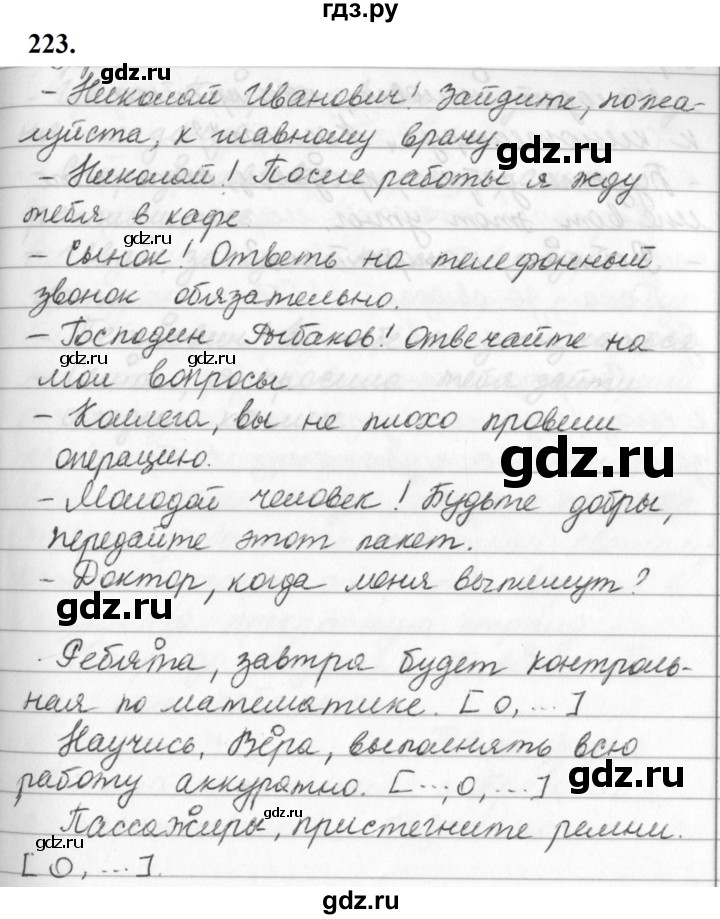 гдз.ру
223.
gdz.ru
- Николай Иванович! Зайдите, пожа-
луйста, к главному врачу.
gdz.ru
- Николай! После работы я жду
тебя в кафе.
gdz.ru
- Сынок! Ответь на телефонный
звонок обязательно.
gdz.ru
- Господин Рыбаков! Отвечайте на
gdz.ru gdz.ru
мои вопросы
- Коллега, вы не плохо провели
операцию.
gdz.ru
- Молодой человек! Будьте добры,
передайте этот пакет.
- Доктор, когда меня выпишут?
gdz.ru
Ребята, завтра будет контроль-
ная по математике. [О, ...]
Научись, Вера, выполнять всю
работу аккуратно. [..., О, ...]
gdz.ru
Пассажиры, пристегните ремни.
gdz.ru
[О, ...].
gdz.ru